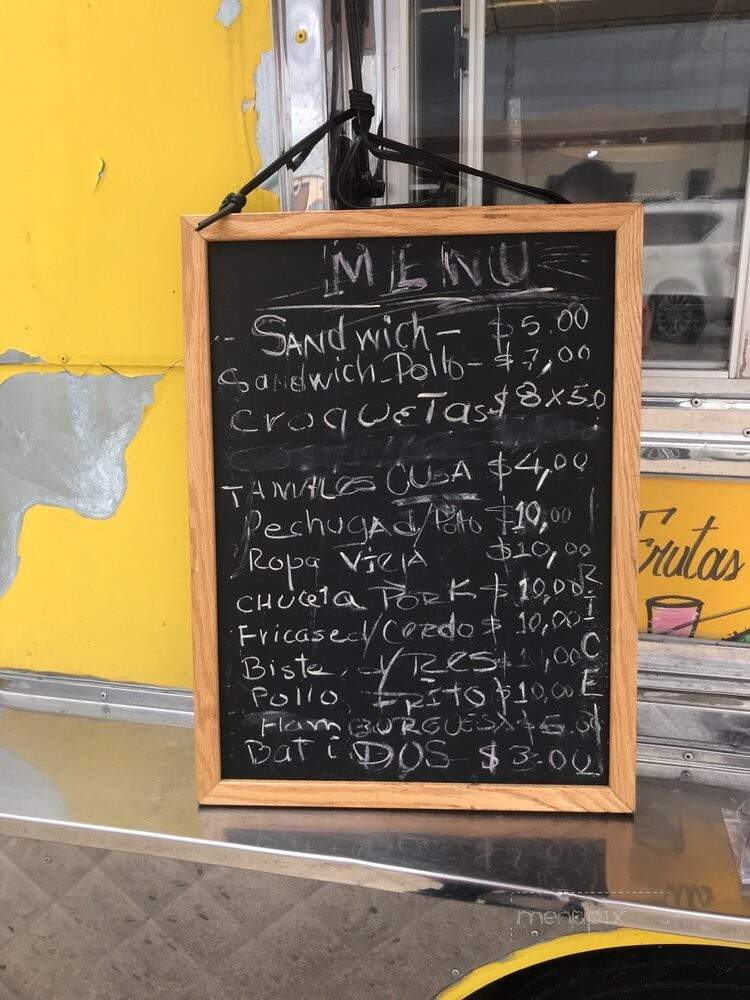 MENU
- SANDwich - $5.00
Sandwich - Pollo - $7,00
CroqueTas $8x5.0
TAMALes CUBA $4,00
Pechuga d/Pollo $10,00
Ropa VieJA $10,00
CHULeTa PORK $10,00
Fricase d/Cerdo $10,00
Biste d/RES $ ,00
Pollo FRITO $10,00
HamBURGUESA $5.00
BaTiDOS $3.00
RICE
Frutas
menupix